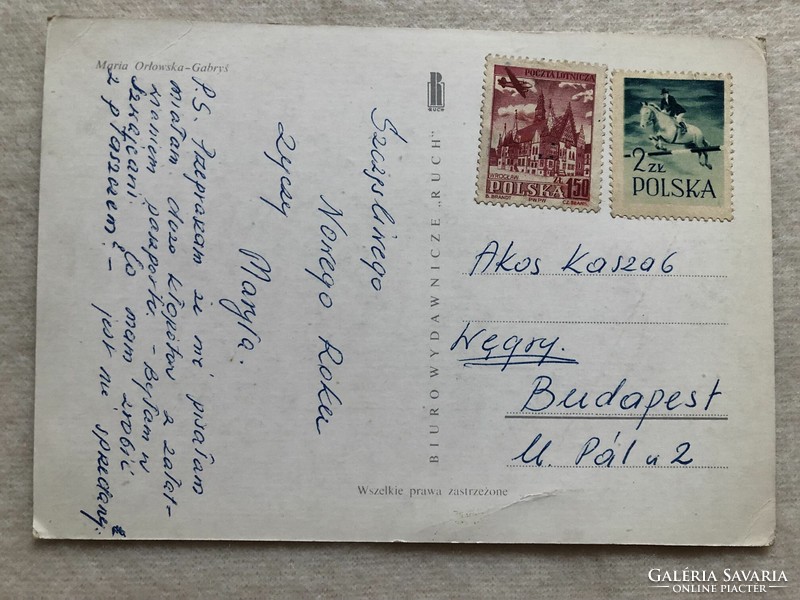 Maria Orłowska-Gabryś
Szczęśliwego
Nowego Roku
życzy
Maryla.
P.S. Przepraszam że nie pisałam
miałam dużo kłopotów z załat-
wianiem paszportu. - Byłam w
Co mam zrobić
z płaszczem? - jest nie sprzedany.
BIURO WYDAWNICZE „RUCH”
RUCH
POCZTA LOTNICZA
WROCŁAW
POLSKA
ZŁ
1.50
S. BRANDT
PWPW
CZ. SŁANIA
2 ZŁ
POLSKA
Akos Kaszab
Węgry.
Budapest
M. Pál u 2
Wszelkie prawa zastrzeżone
GALÉRIA SAVARIA
ONLINE PIACTÉR